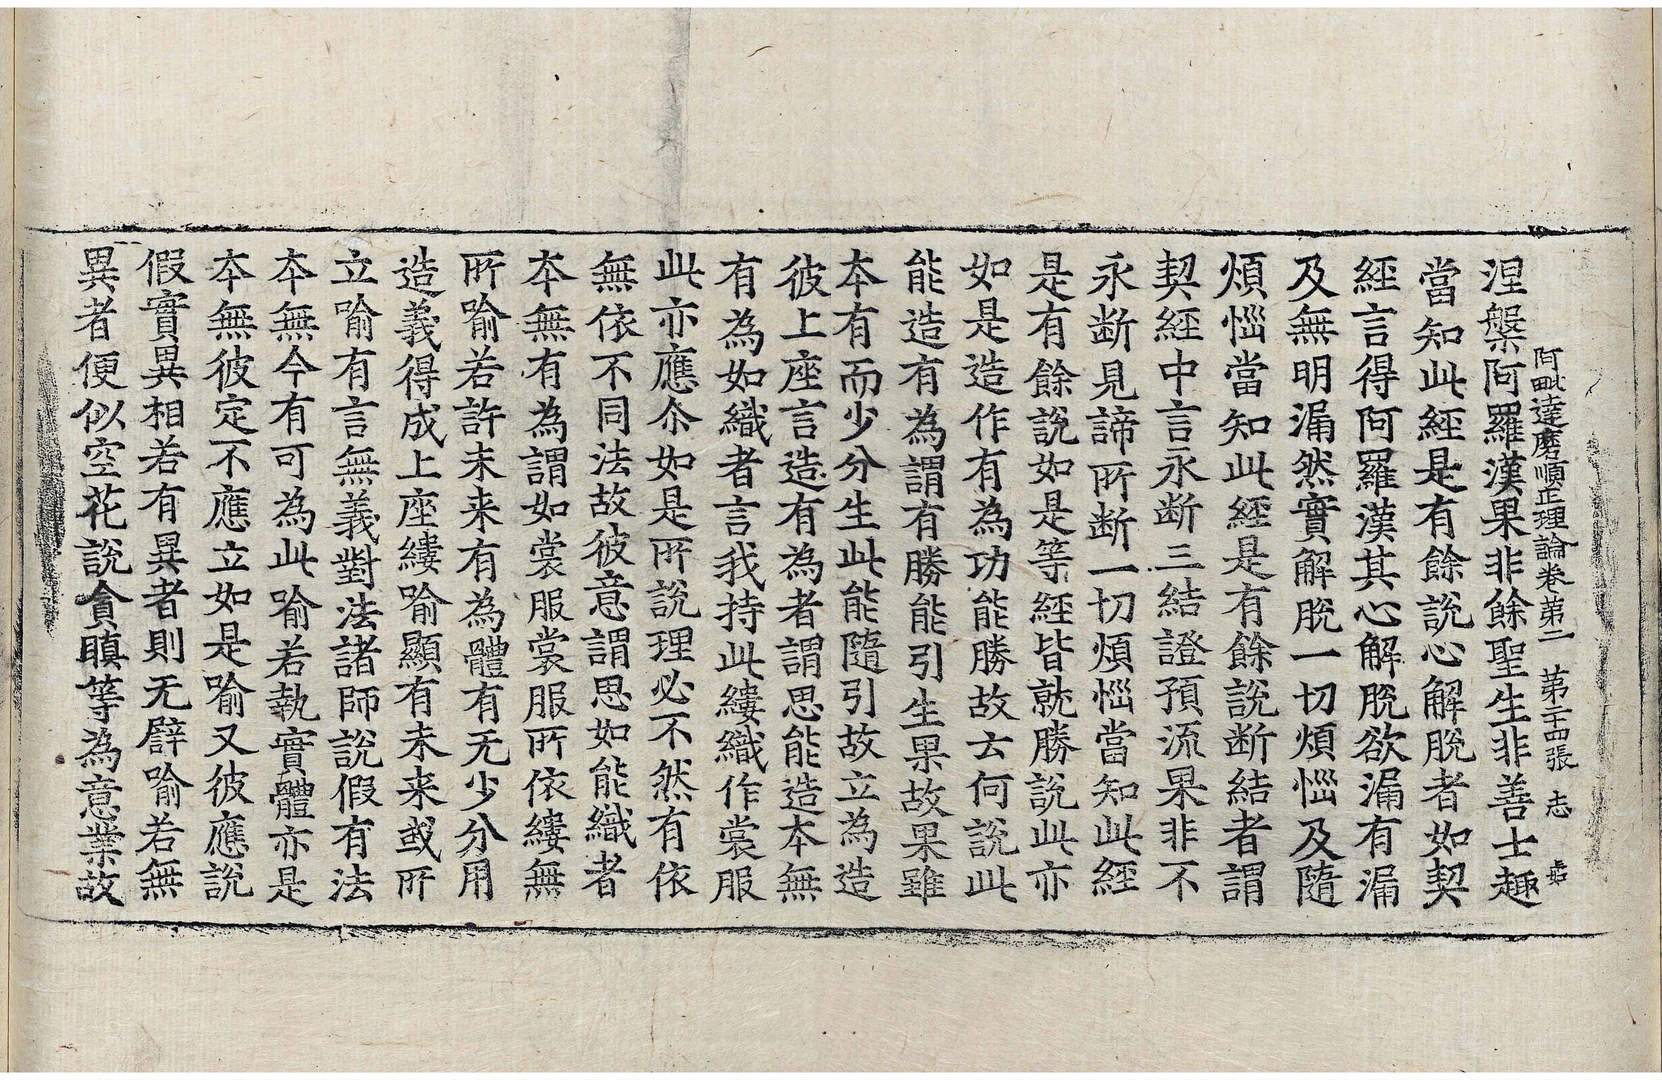 阿毗達磨順正理論卷第二　第二十四張　志
涅槃阿羅漢果非餘聖生非善士趣
當知此經是有餘說心解脫者如契
經言得阿羅漢其心解脫欲漏有漏
及無明漏然實解脫一切煩惱及隨
煩惱當知此經是有餘說斷結者謂
契經中言永斷三結證預流果非不
永斷見諦所斷一切煩惱當知此經
是有餘說如是等經皆就勝說此亦
如是造作有為功能勝故云何說此
能造有為謂有勝能引生果故果雖
本有而少分生此能隨引故立為造
彼上座言造有為者謂思能造本無
有為如織者言我持此縷織作裳服
此亦應尒如是所說理必不然有依
無依不同法故彼意謂思如能織者
本無有為謂如裳服裳服所依縷無
所喻若許未来有為體有无少分用
造義得成上座縷喻顯有未来或所
立喻有言無義對法諸師說假有法
本無今有可為此喻若執實體亦是
本無彼定不應立如是喻又彼應說
假實異相若有異者則无譬喻若無
異者便似空花說貪瞋等為意業故